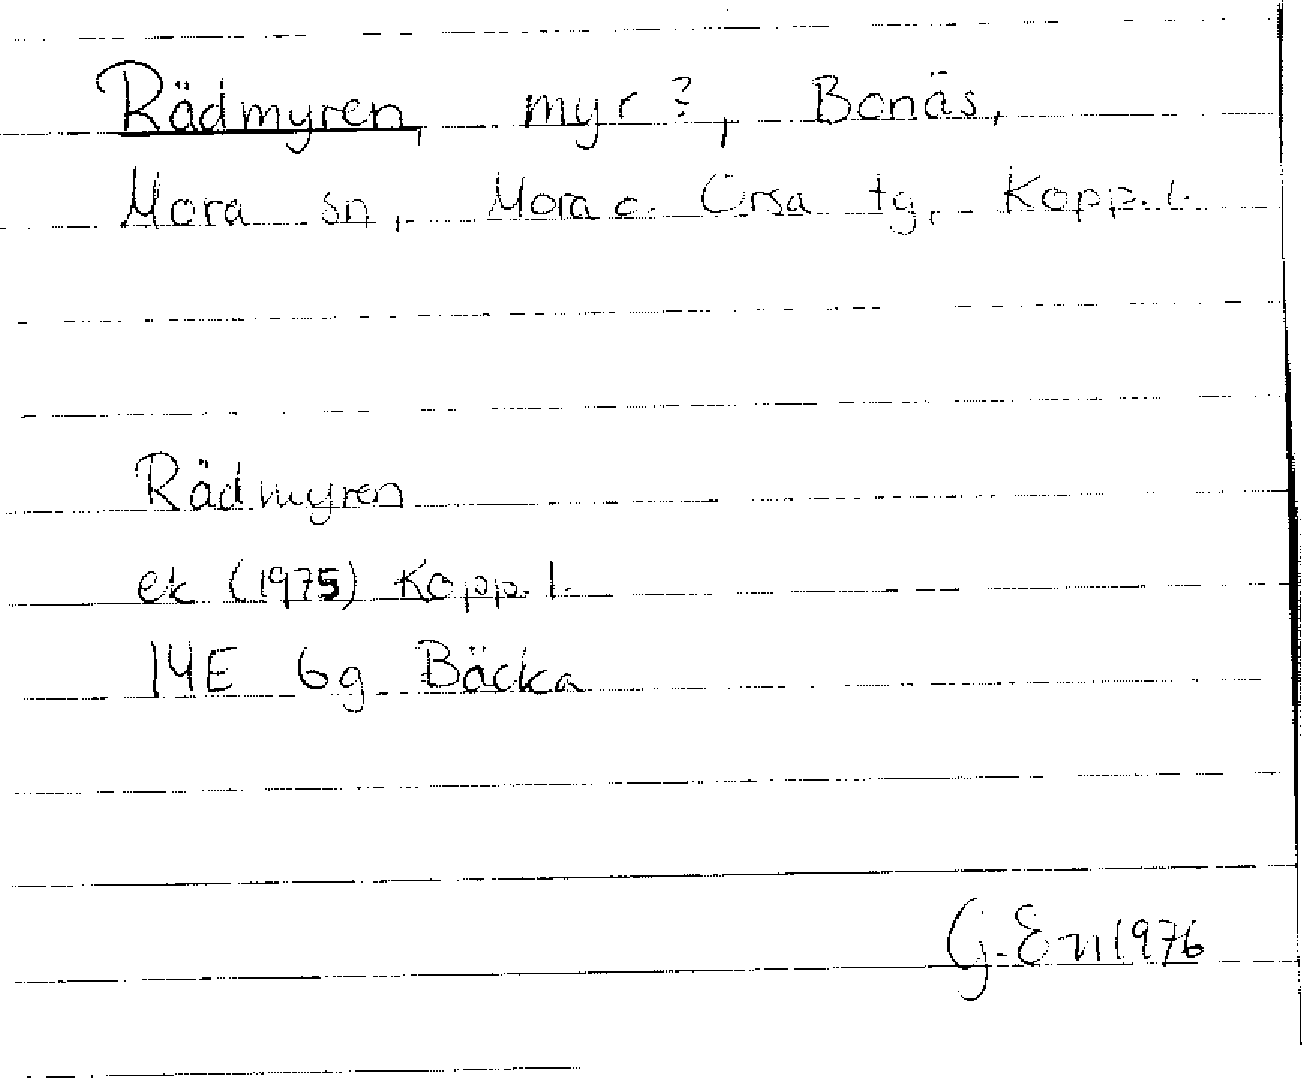 Rädmyren, myr?, Bonäs,
Mora sn, Mora o. Orsa tg, Kopp. l.
Rädmyren
ek (1975) Kopp. l.
14E 6g Bäcka
G. En 1976